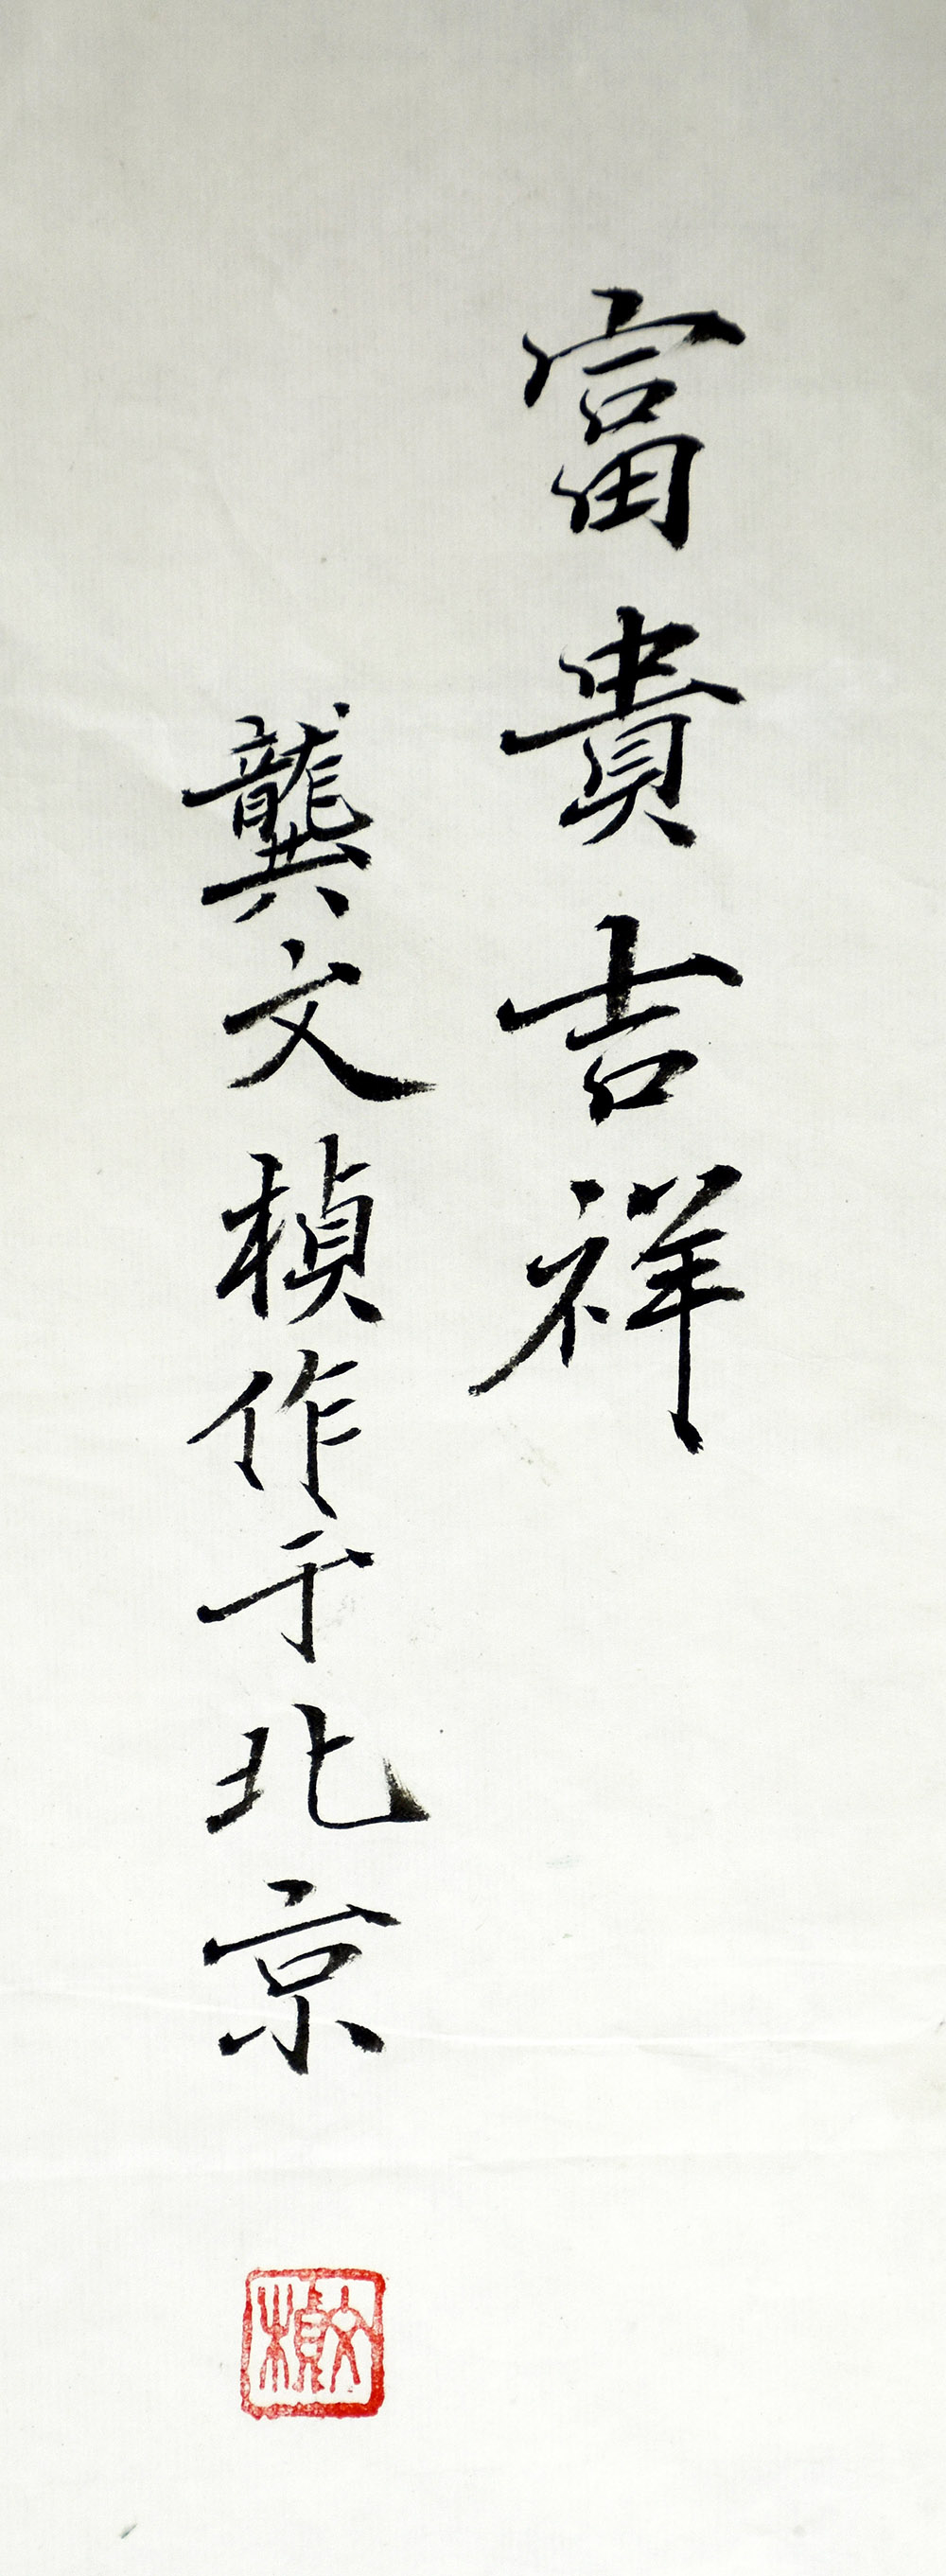 富貴吉祥
龔文楨作于北京
文楨